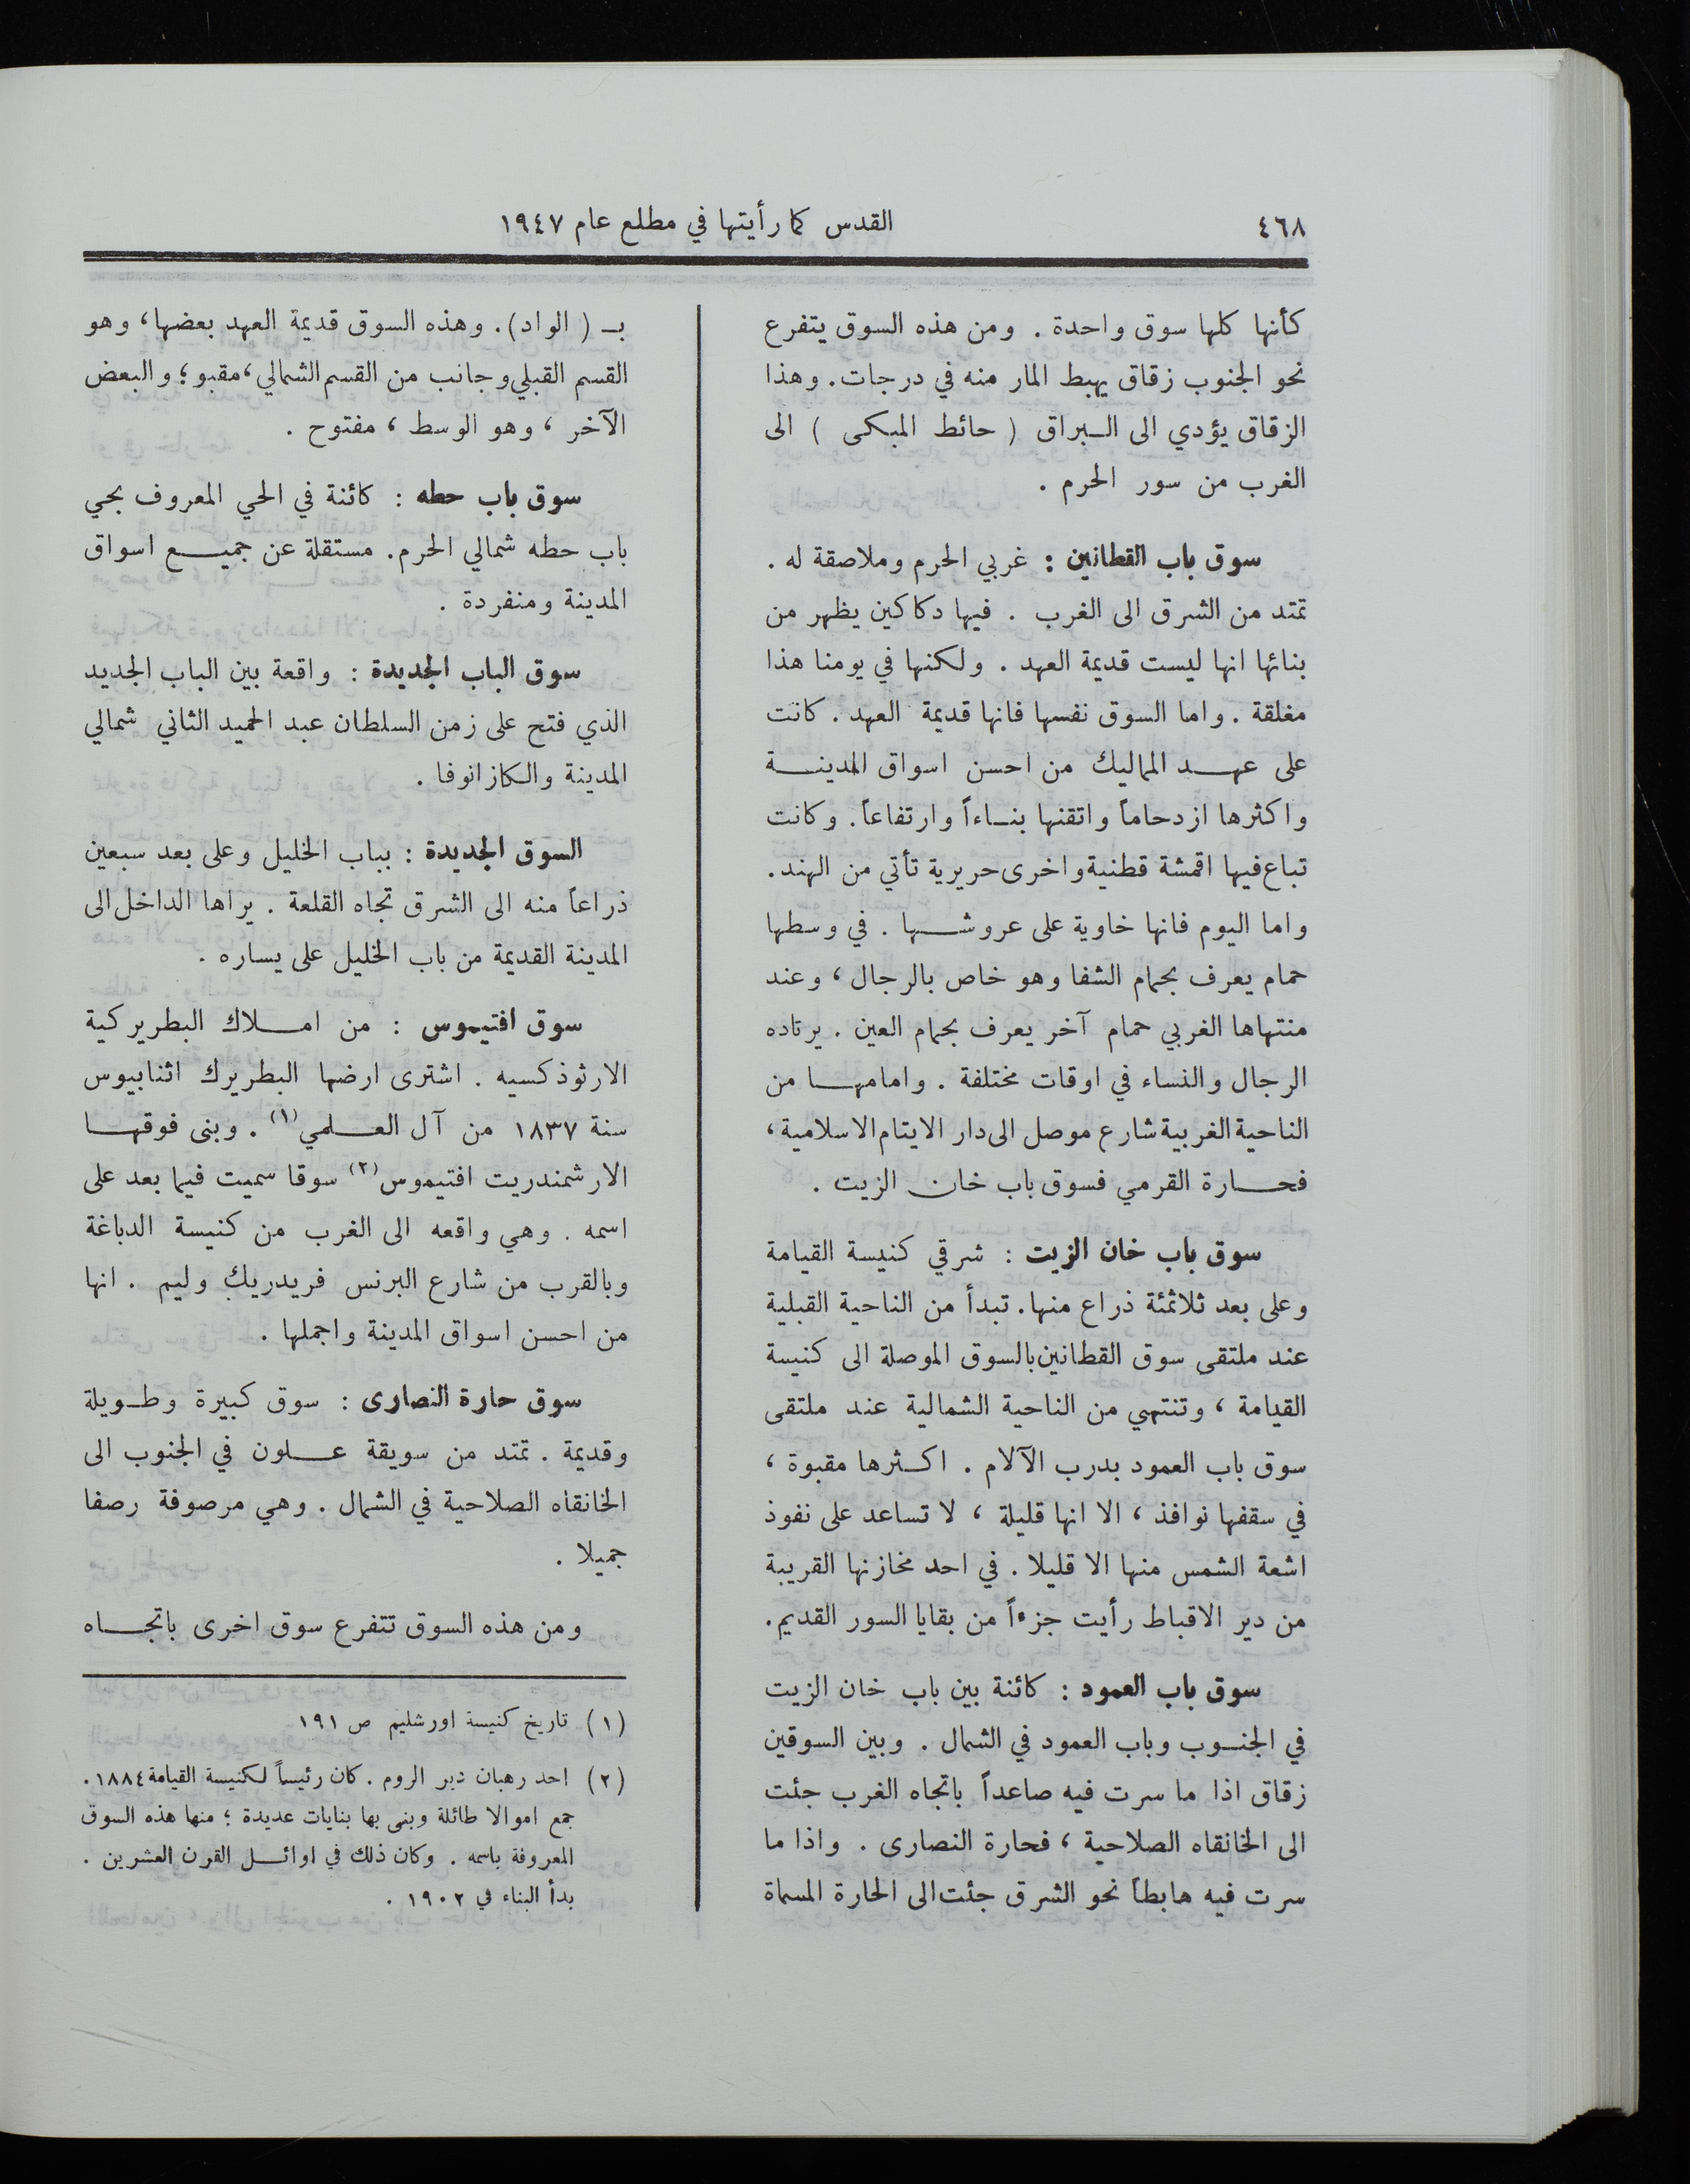 ٤٦٨
القدس كما رأيتها في مطلع عام ١٩٤٧
كأنها كلها سوق واحدة . ومن هذه السوق يتفرع
نحو الجنوب زقاق يهبط المار منه في درجات . وهذا
الزقاق يؤدي الى البراق ( حائط المبكى ) الى
الغرب من سور الحرم .
سوق باب القطانين : غربي الحرم وملاصقة له .
تمتد من الشرق الى الغرب . فيها دكاكين يظهر من
بنائها انها ليست قديمة العهد . ولكنها في يومنا هذا
مغلقة . واما السوق نفسها فانها قديمة العهد . كانت
على عهد المماليك من احسن اسواق المدينة
واكثرها ازدحاماً واتقنها بناءاً وارتفاعاً . وكانت
تباع فيها اقمشة قطنية واخرى حريرية تأتي من الهند .
واما اليوم فانها خاوية على عروشها . في وسطها
حمام يعرف بحمام الشفا وهو خاص بالرجال ، وعند
منتهاها الغربي حمام آخر يعرف بحمام العين . يرتاده
الرجال والنساء في اوقات مختلفة . وامامها من
الناحية الغربية شارع موصل الى دار الايتام الاسلامية ،
فحارة القرمي فسوق باب خان الزيت .
سوق باب خان الزيت : شرقي كنيسة القيامة
وعلى بعد ثلاثمئة ذراع منها . تبدأ من الناحية القبلية
عند ملتقى سوق القطانين بالسوق الموصلة الى كنيسة
القيامة ، وتنتهي من الناحية الشمالية عند ملتقى
سوق باب العمود بدرب الآلام . اكثرها مقبوة ،
في سقفها نوافذ ، الا انها قليلة ، لا تساعد على نفوذ
اشعة الشمس منها الا قليلا . في احد مخازنها القريبة
من دير الاقباط رأيت جزءاً من بقايا السور القديم .
سوق باب العمود : كائنة بين باب خان الزيت
في الجنوب وباب العمود في الشمال . وبين السوقين
زقاق اذا ما سرت فيه صاعداً باتجاه الغرب جئت
الى الخانقاه الصلاحية ، فحارة النصارى . واذا ما
سرت فيه هابطاً نحو الشرق جئت الى الحارة المسماة
بـ ( الواد ) . وهذه السوق قديمة العهد بعضها ، وهو
القسم القبلي وجانب من القسم الشمالي ، مقبو ؛ والبعض
الآخر ، وهو الوسط ، مفتوح .
سوق باب حطه : كائنة في الحي المعروف بحي
باب حطه شمالي الحرم . مستقلة عن جميع اسواق
المدينة ومنفردة .
سوق الباب الجديدة : واقعة بين الباب الجديد
الذي فتح على زمن السلطان عبد الحميد الثاني شمالي
المدينة والكازانوفا .
السوق الجديدة : بباب الخليل وعلى بعد سبعين
ذراعاً منه الى الشرق تجاه القلعة . يراها الداخل الى
المدينة القديمة من باب الخليل على يساره .
سوق افتيموس : من املاك البطريركية
الارثوذكسيه . اشترى ارضها البطريرك اثنابيوس
سنة ١٨٣٧ من آل العلمي (١) . وبنى فوقها
الارشمندريت افتيموس (٢) سوقا سميت فيما بعد على
اسمه . وهي واقعه الى الغرب من كنيسة الدباغة
وبالقرب من شارع البرنس فريدريك وليم . انها
من احسن اسواق المدينة واجملها .
سوق حارة النصارى : سوق كبيرة وطويلة
وقديمة . تمتد من سويقة علون في الجنوب الى
الخانقاه الصلاحية في الشمال . وهي مرصوفة رصفا
جميلا .
ومن هذه السوق تتفرع سوق اخرى باتجاه
(١) تاريخ كنيسة اورشليم ص ١٩١
(٢) احد رهبان دير الروم . كان رئيساً لكنيسة القيامة ١٨٨٤ .
جمع اموالا طائلة وبنى بها بنايات عديدة ؛ منها هذه السوق
المعروفة باسمه . وكان ذلك في اوائل القرن العشرين .
بدأ البناء في ١٩٠٢ .